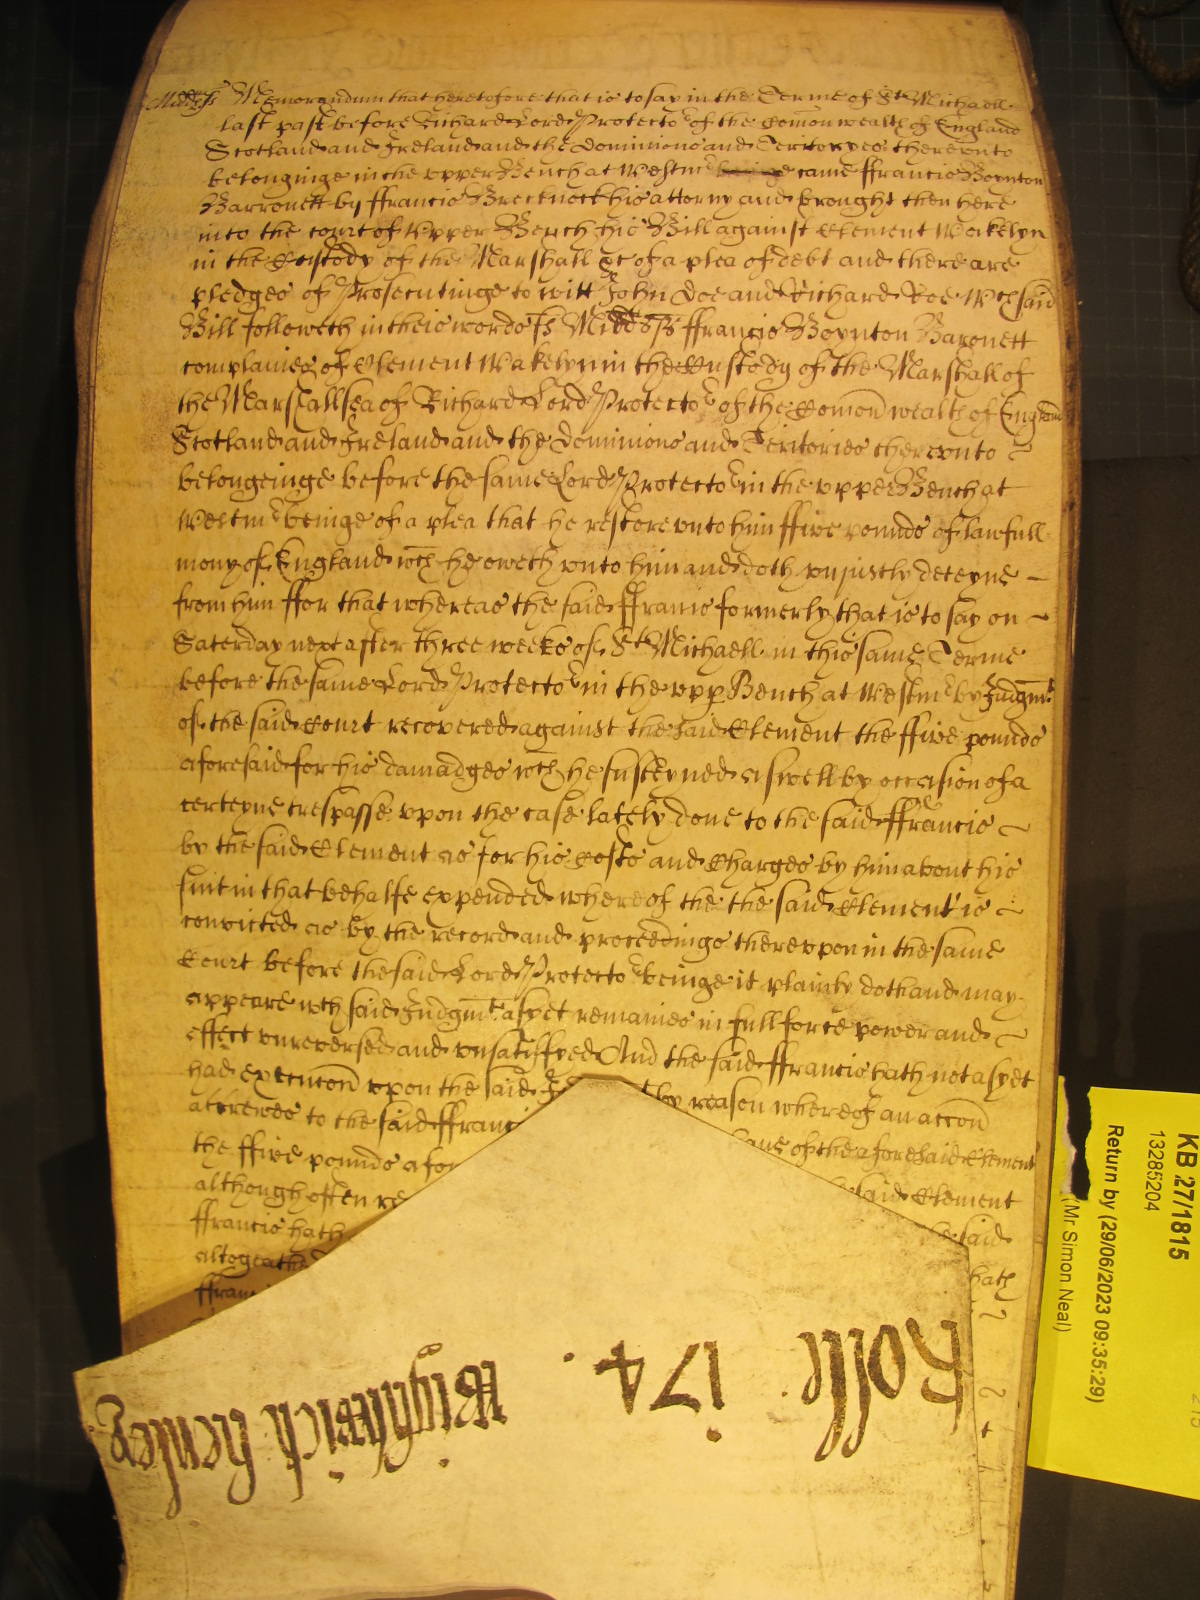 Midds ſs Memorandum that heretofore that is to say in the Terme of St Michaell
last past before Richard Lord Protector of the Comon wealth of England
Scotland and Ireland and the Dominions and Territoryes thereunto
belonginge in the upper Bench at Westmr came ffrancis Boynton
Barronett by ffrancis Brecknock his attorny and brought then here
into the court of Upper Bench his Bill against Clement Wakelyn
in the Custody of the Marshall &c of a plea of debt and there are
pledges of Prosecutinge to witt John Doe and Richard Roe Wch said
Bill followeth in theis words ſs Midds ſs ffrancis Boynton Baronett
complaines of Clement Wakelyn in the Custody of the Marshall of
the Marshallsea of Richard Lord Protector of the Comon wealth of England
Scotland and Ireland and the Dominions and Teritories thereunto
belongeinge before the same Lord Protector in the upper Bench at
Westmr beinge of a plea that he restore unto him ffive pounds of lawfull
mony of England wch he oweth unto him and doth unjustly deteyne
from him ffor that whereas the said ffrancis formerly that is to say on
Saterday next after three weeks of St Michaell in this same Terme
before the same Lord Protector in the upp Bench at Westmr by Judgmt
of the said Court recovered against the said Clement the ffive pounds
aforesaid for his damadges wch he susteyned aswell by occasion of a
certeyne trespasse upon the case lately done to the said ffrancis
by the said Clement as for his Costs and Charges by him about his
suit in that behalfe expended whereof the the said Clement is
convicted as by the record and proceedings thereupon in the same
Court before the said Lord Protector beinge it plainly doth and may
appeare wch said Judgmt as yet remaines in full force power and
effect unreversed and unsatisfyed And the said ffrancis hath not as yet
had execucon upon the said by reason whereof an accon
accrewes to the said ffranc have of the aforesaid Clement
the ffive pounds afor said Clement
although often re the said
ffrancis hath hath
altogeathe
ffran
Rolle 174.
Wightwick
KB 27/1815
13285204
Return by (29/06/2023 09:35:29)
(Mr Simon Neal)